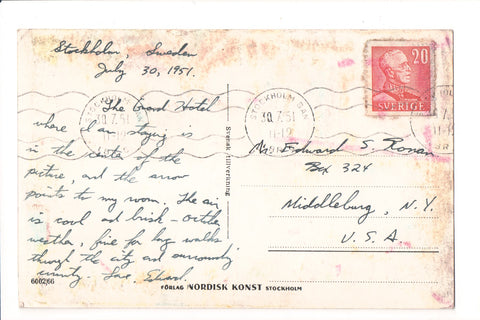 Stockholm, Sweden
July 30, 1951.
The Grand Hotel
where I am staying is
in the center of the
picture, and the arrow
points to my room. The air
is cool and brisk - October
weather, fine for long walks
through the city and surrounding
county. Love, Edward.
6602/66
Svensk tillverkning
FÖRLAG NORDISK KONST STOCKHOLM
20
SVERIGE
STOCKHOLM BAN
30.7.51
11-12
Mr. Edward S. Ronan
Box 324
Middleburg, N.Y.
U.S.A.